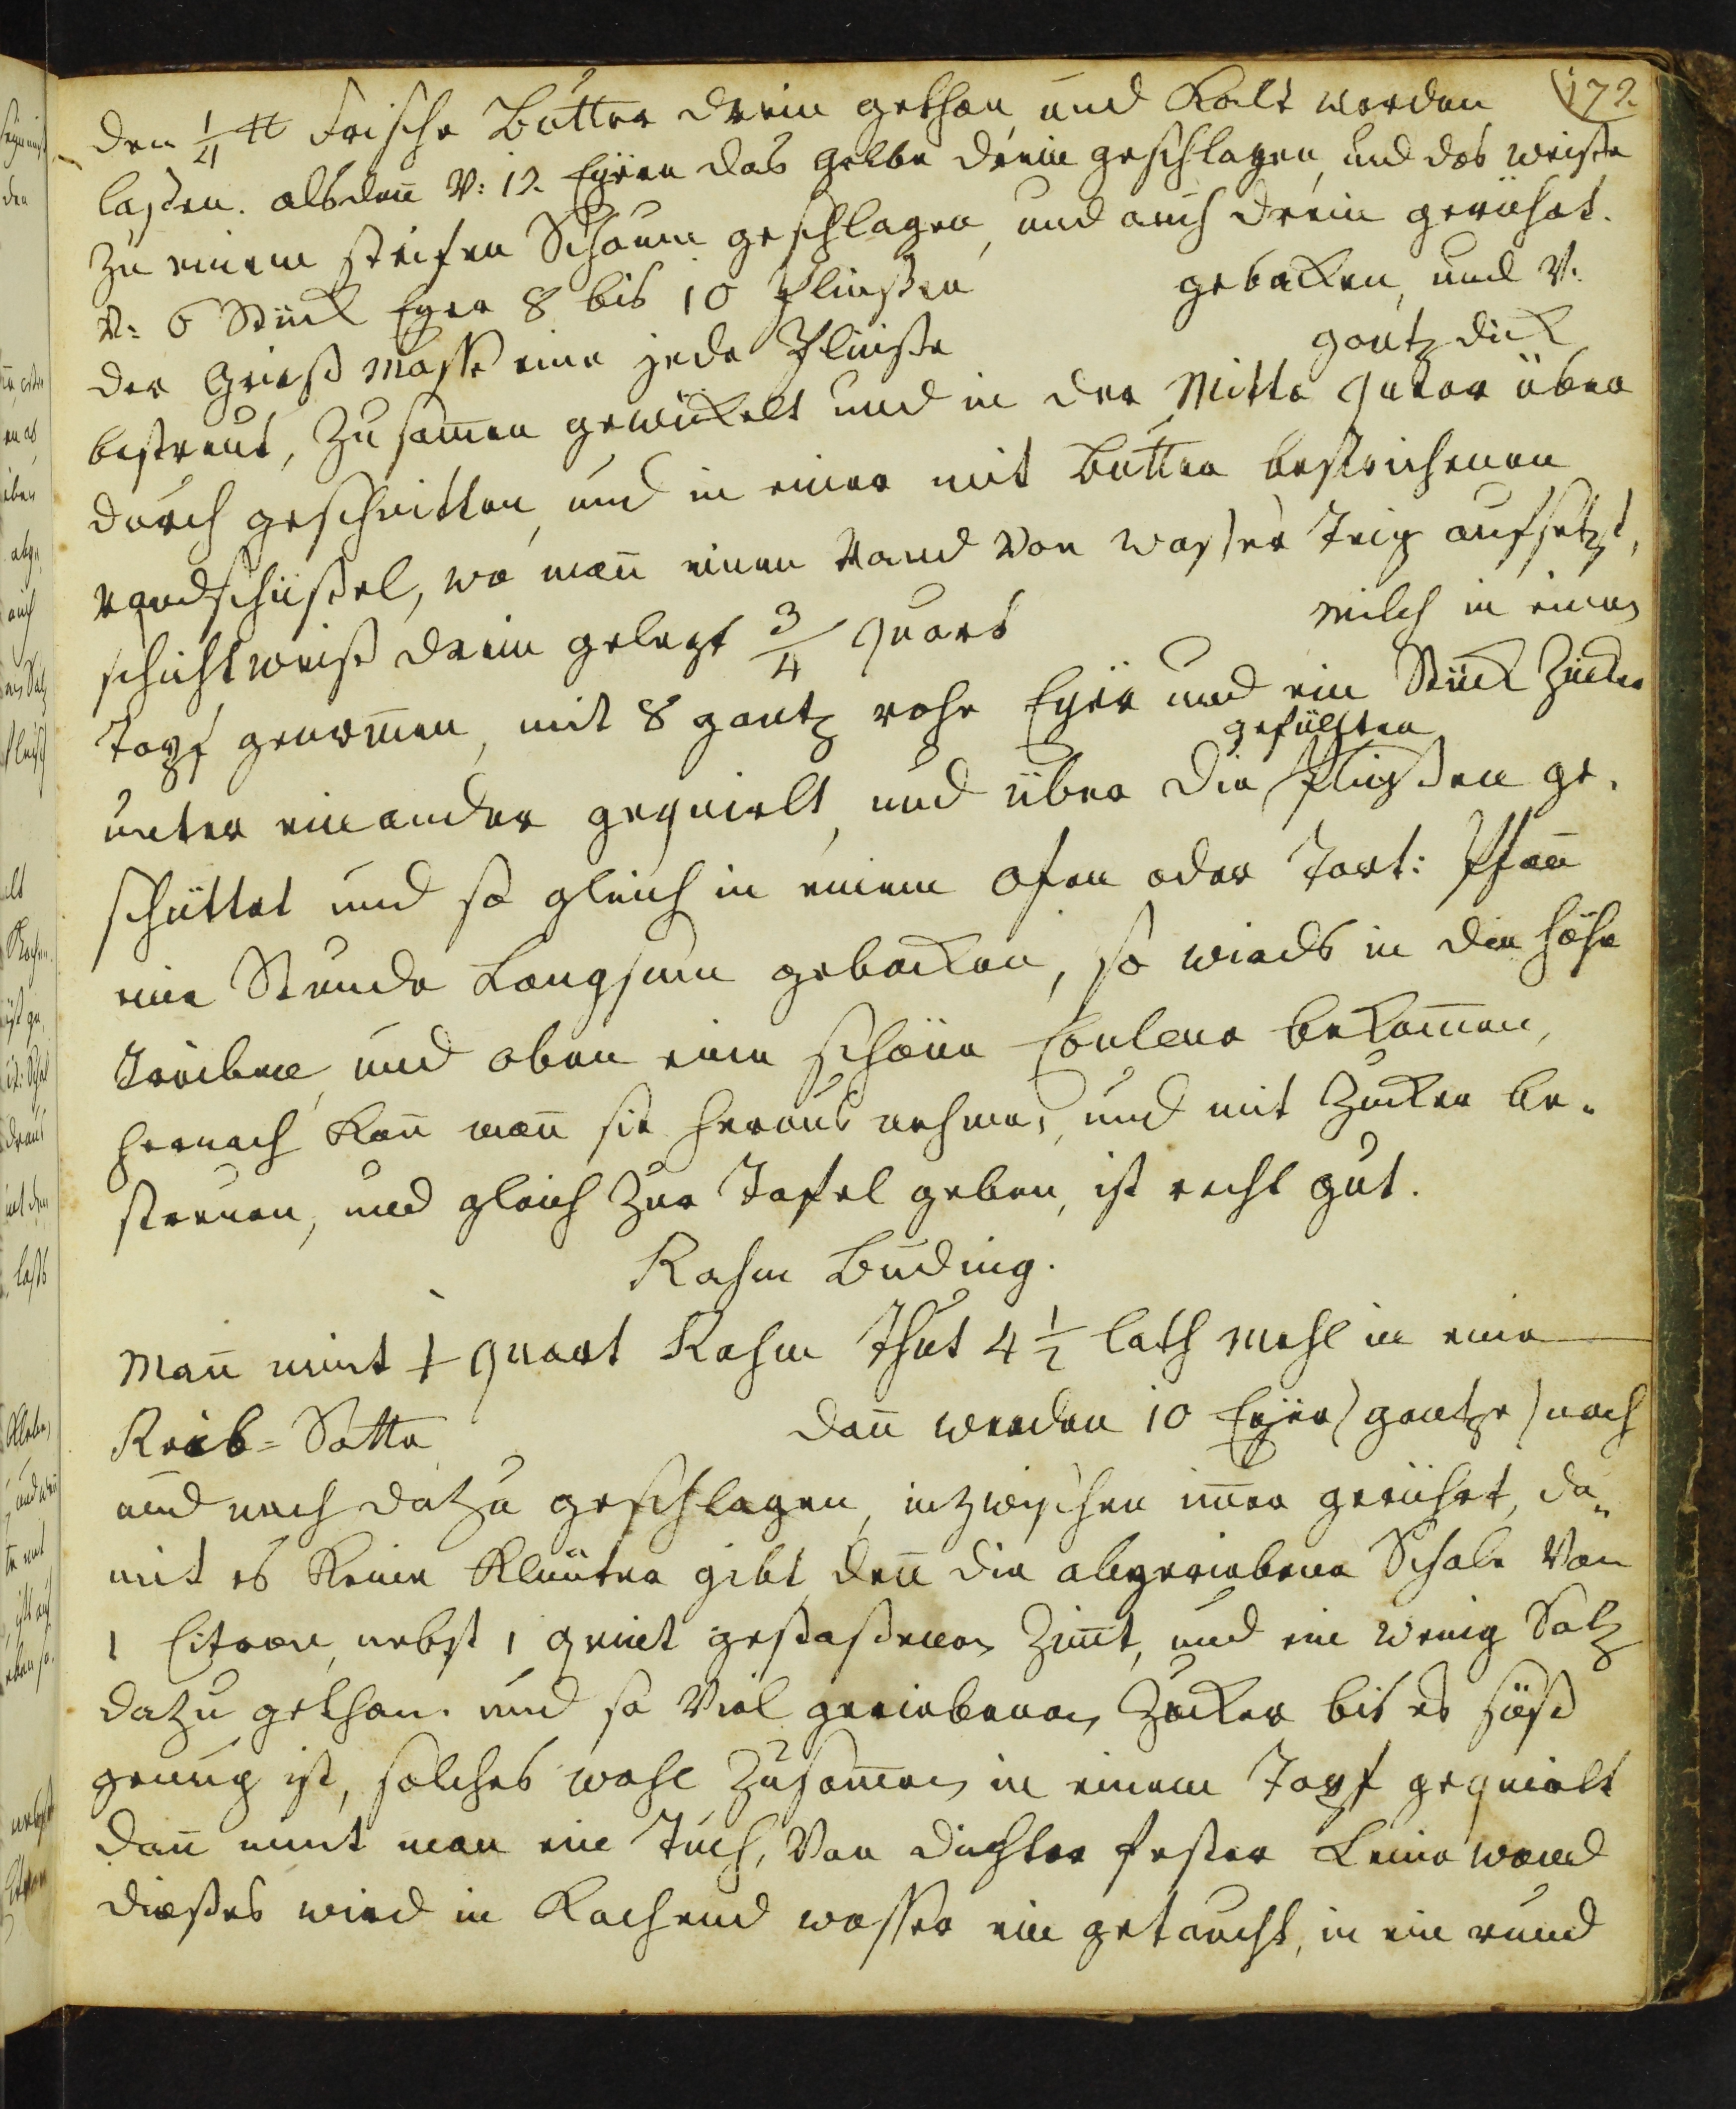 172.
den 1/4 ℔ frische Butter drein gethan und Kalt werden
laßen. alsdan̄ v: 12. Eÿern das gelbe drein geschlagen, und das weiße
zu einem steifen Schaum geschlagen, und auch drein gerührt.
v: 6 Stück Eyer 8 bis 10 Plinßen gebacken, und v.
der Grieß Masse eine jede Plinße gantz dick
bestreut, Zusam̄en gewickelt und in der Mitte queer über
durch geschnitten, und in einer mit Butter bestrichenen
Randschüßel, wo man̄ einen Rand von waßer Teig aufsetzt,
schichtweiß drein gelegt 3/4 quart Milch in einen
Topf genom̄en, mit 8 gantz rohe Eyer und ein Stück Zucker
unter einander gequirlt, und über die gefüllten Plinßen ge-
schüttet und so gleich in einem ofen oder Tort: Pfan̄
eine Stunde Langsam gebacken, so wirds in die Höhe
treiben und oben eine schöne Couleur bekom̄en,
hernach kan̄ man̄ sie heraus nehmen, und mit Zucker be-
streuen, und gleich zur Tafel geben, ist recht gut.
Rahm Buding.
Man̄ nimt 1 quart Rahm thut 4 1/2 loth Mehl in eine
Reib-Satte dan̄ werden 10 Eÿer (gantze) nach
und nach dazu geschlagen, inzwischen im̄er gerührt, da-
mit es keine Klümter gibt, den̄ die abgeriebene Schale von
1 Citron, nebst 1 quint gestoßenen Zim̄t, und ein wenig Saltz
dazu gethan. und so viel geriebenen Zucker bis es süß
genug ist, solches wohl Zusam̄en in einem Topf gequirlt
dan̄ nimt man ein Tuch, von dichter fester Leinewand
dießes wird in Kochend wasser ein getaucht, in ein rund